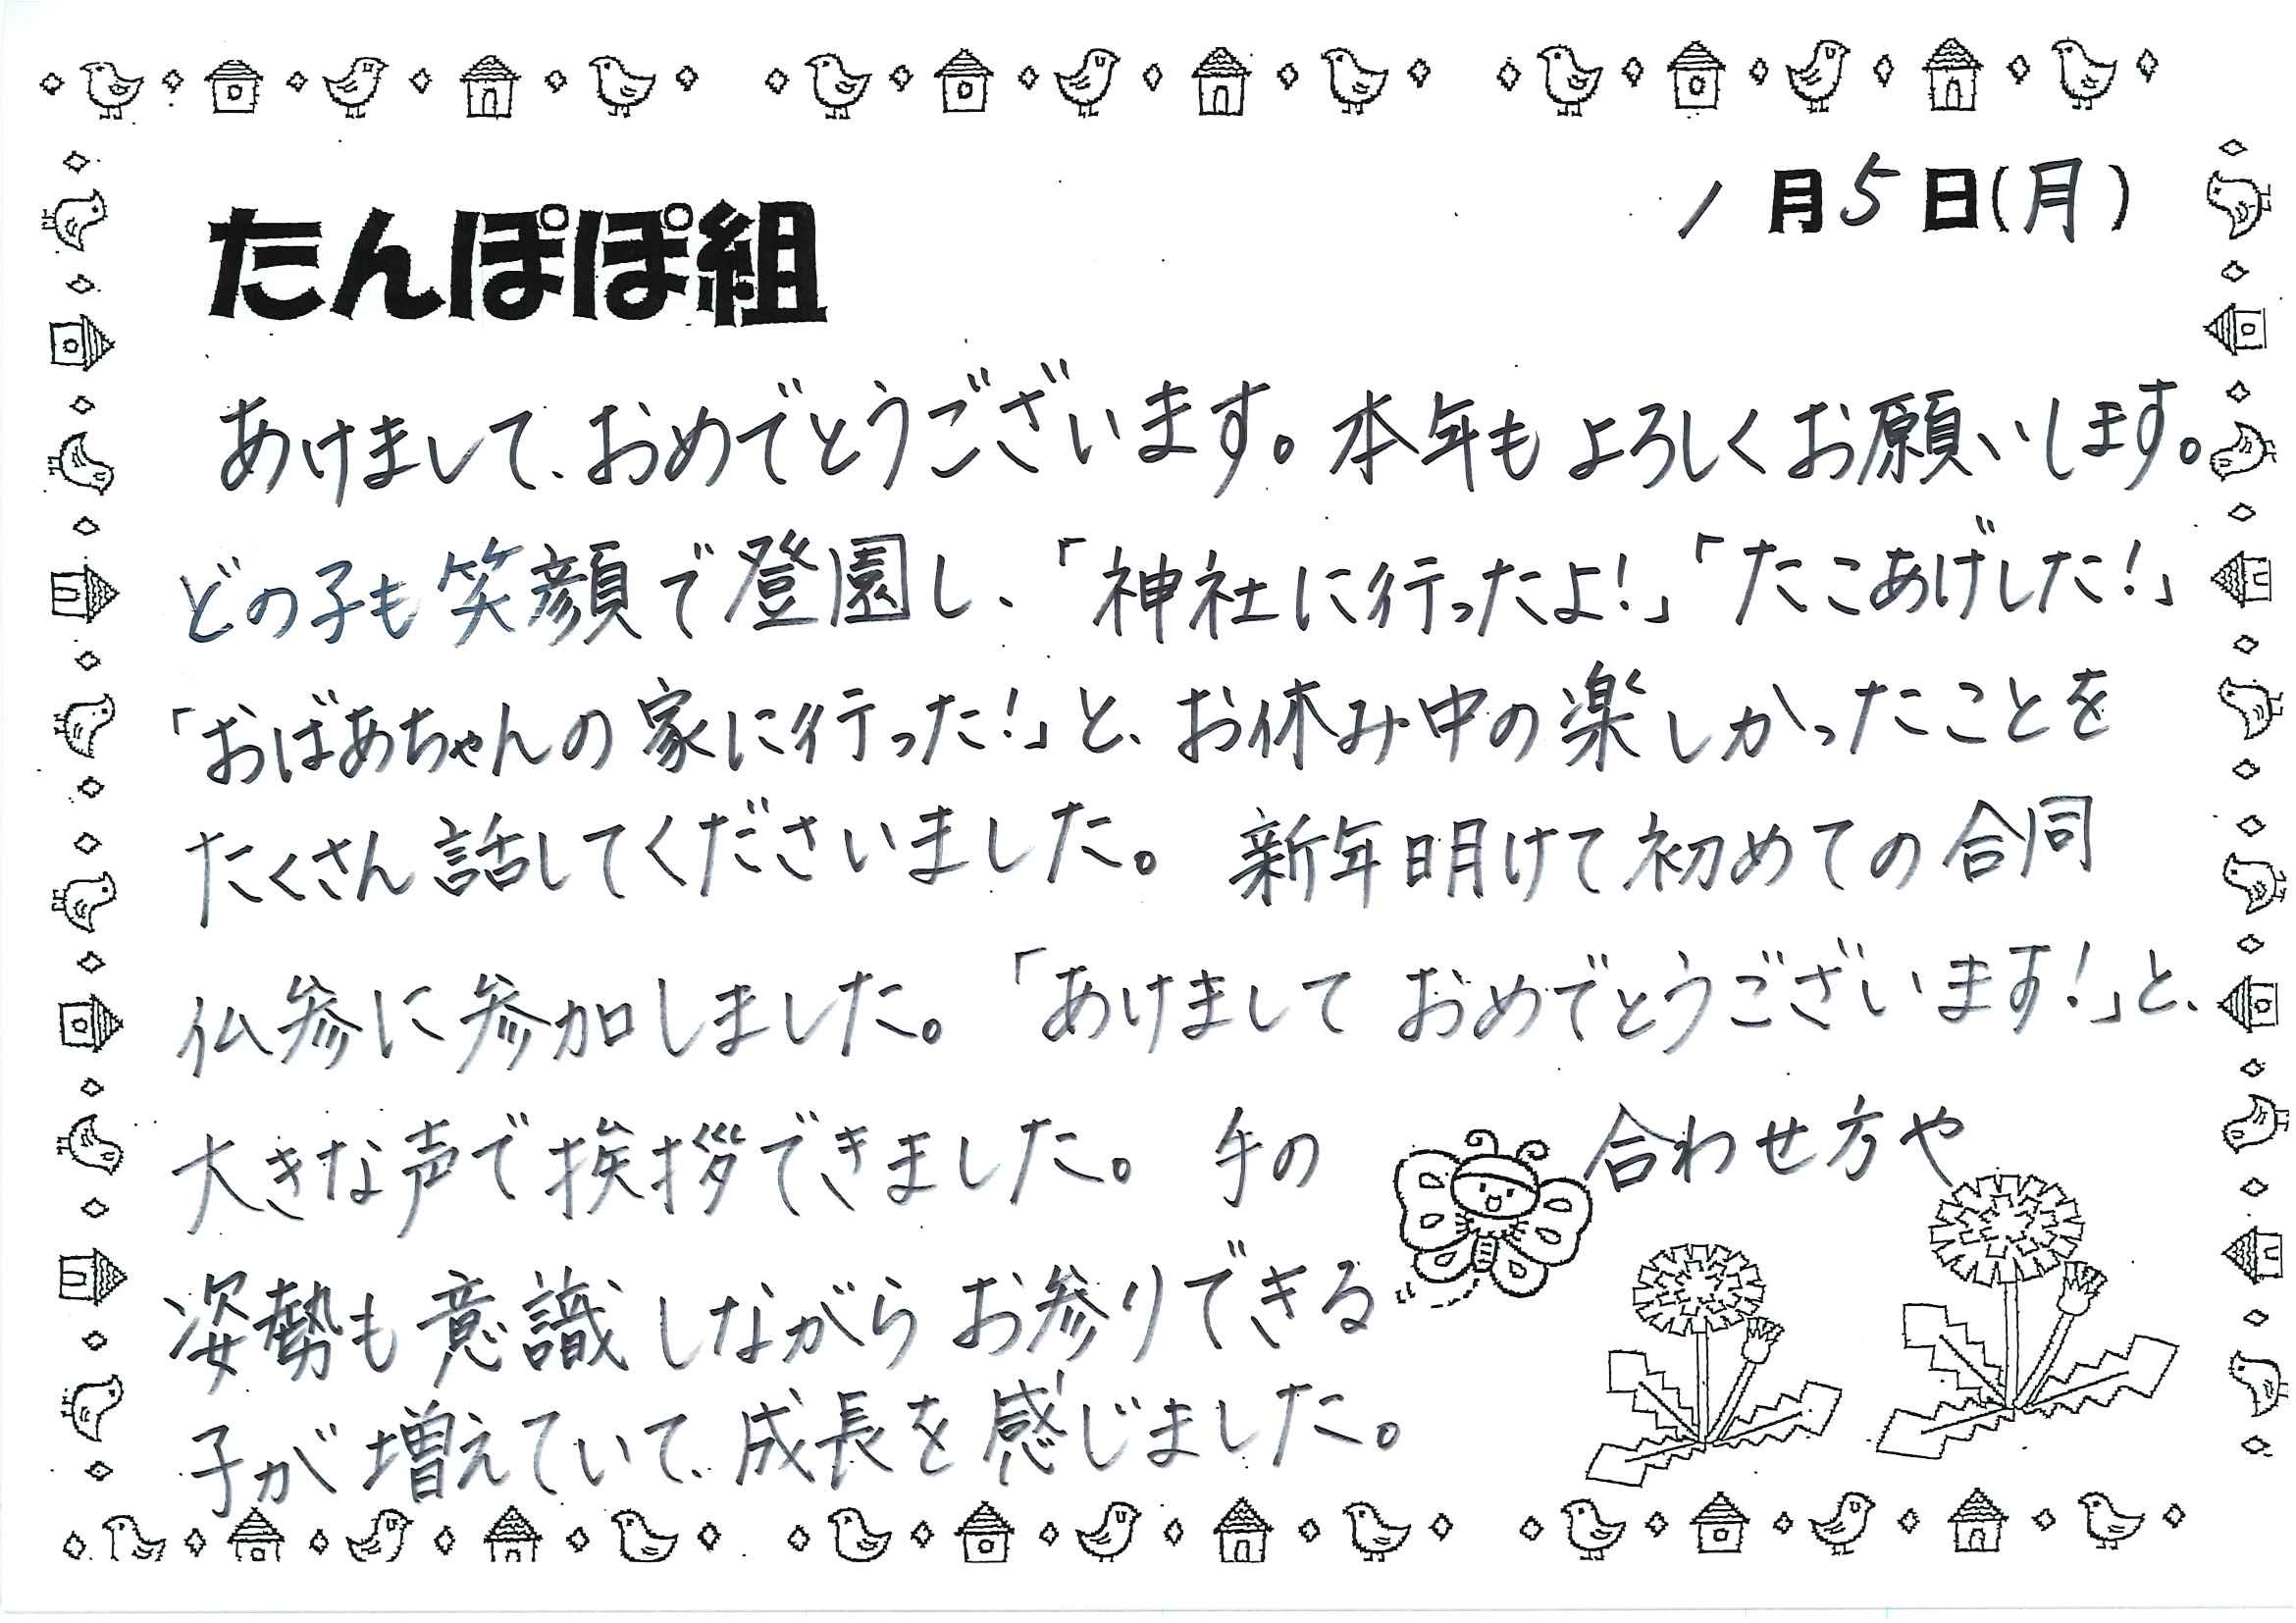 1月5日(月)
たんぽぽ組
あけまして、おめでとうございます。本年もよろしくお願いします。
どの子も笑顔で登園し、「神社に行ったよ!」「たこあげした!」
「おばあちゃんの家に行った!」と、お休み中の楽しかったことを
たくさん話してくださいました。新年明けて初めての合同
仏参に参加しました。「あけまして おめでとうございます!」と、
大きな声で挨拶できました。手の 合わせ方や
姿勢も意識しながらお参りできる
子が増えていて、成長を感じました。